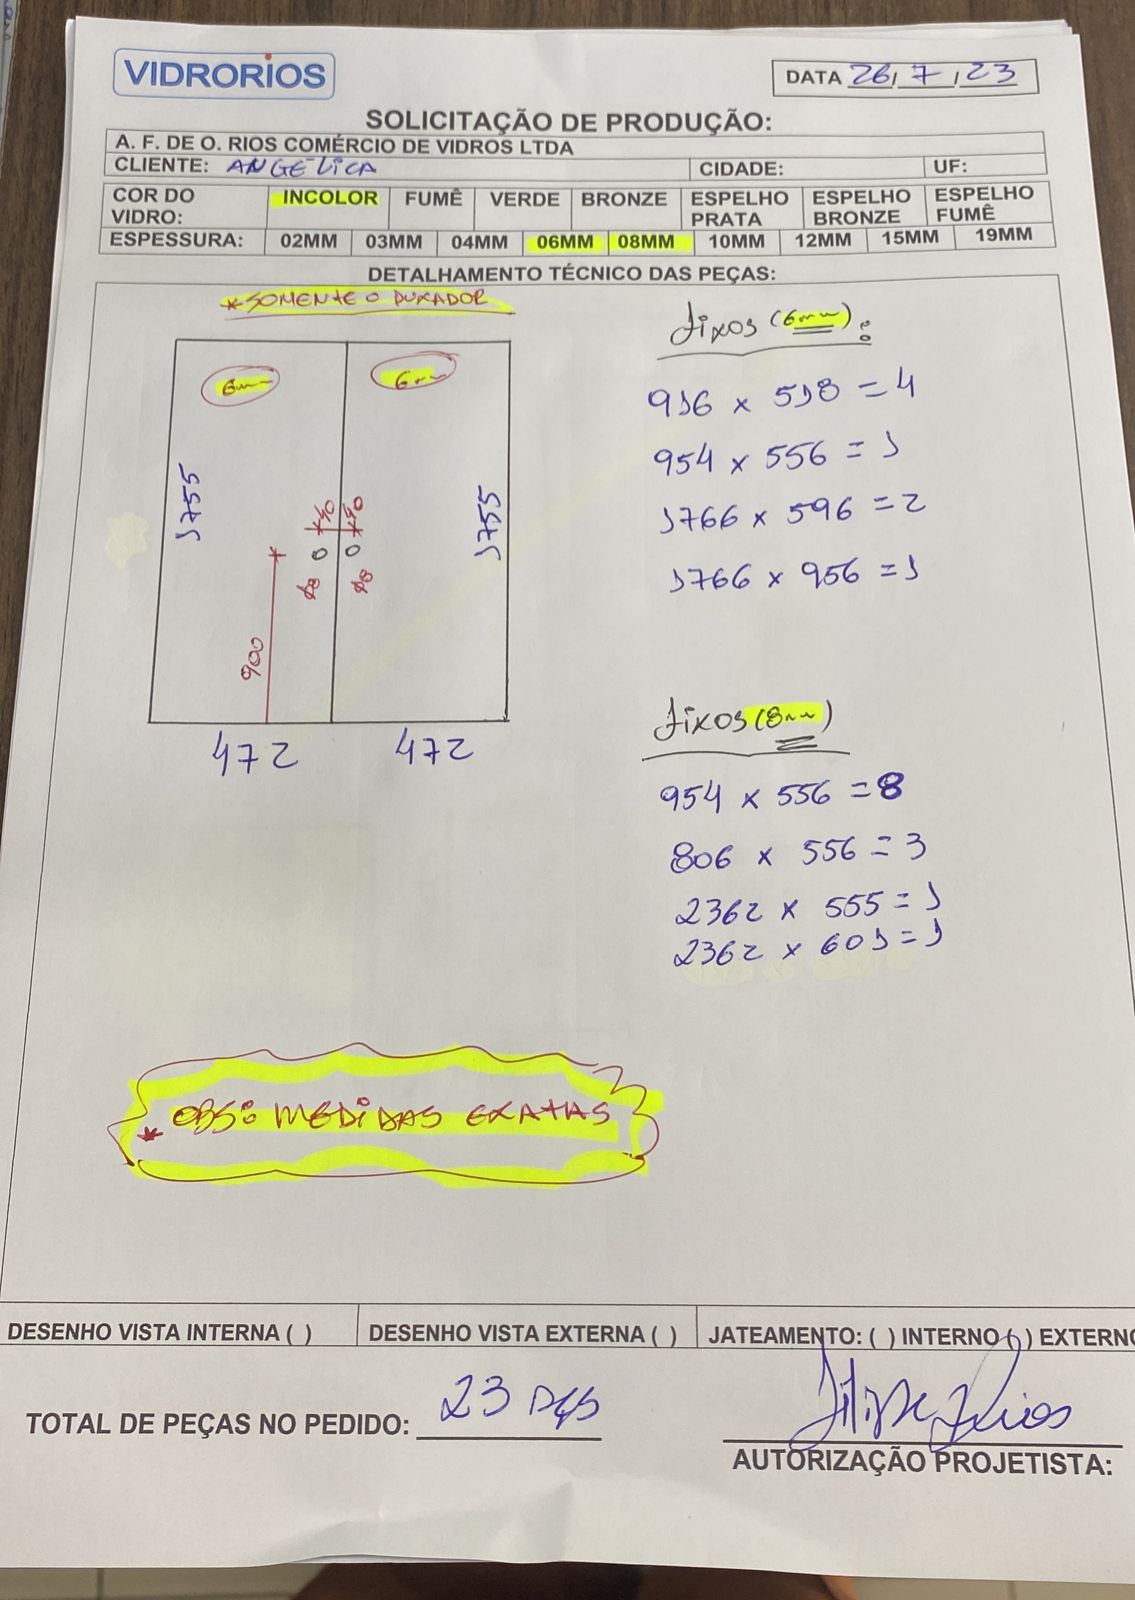 VIDRORIOS
DATA 26/7/23
SOLICITAÇÃO DE PRODUÇÃO:
A. F. DE O. RIOS COMÉRCIO DE VIDROS LTDA
CLIENTE: ANGÉLICA CIDADE: UF:
COR DO VIDRO: INCOLOR FUMÊ VERDE BRONZE ESPELHO PRATA ESPELHO BRONZE ESPELHO FUMÊ
ESPESSURA: 02MM 03MM 04MM 06MM 08MM 10MM 12MM 15MM 19MM
DETALHAMENTO TÉCNICO DAS PEÇAS:
*SOMENTE O PUXADOR
fixos (6mm):
6mm 6mm
916 x 518 = 4
954 x 556 = 1
1755 1755
1766 x 596 = 2
40 40
1766 x 956 = 1
900
fixos (8mm)
472 472
954 x 556 = 8
806 x 556 = 3
2362 x 555 = 1
2362 x 601 = 1
* OBS: MEDIDAS EXATAS
DESENHO VISTA INTERNA ( ) DESENHO VISTA EXTERNA ( ) JATEAMENTO: ( ) INTERNO ( ) EXTERNO
TOTAL DE PEÇAS NO PEDIDO: 23 PÇS
Filipe Rios
AUTORIZAÇÃO PROJETISTA: